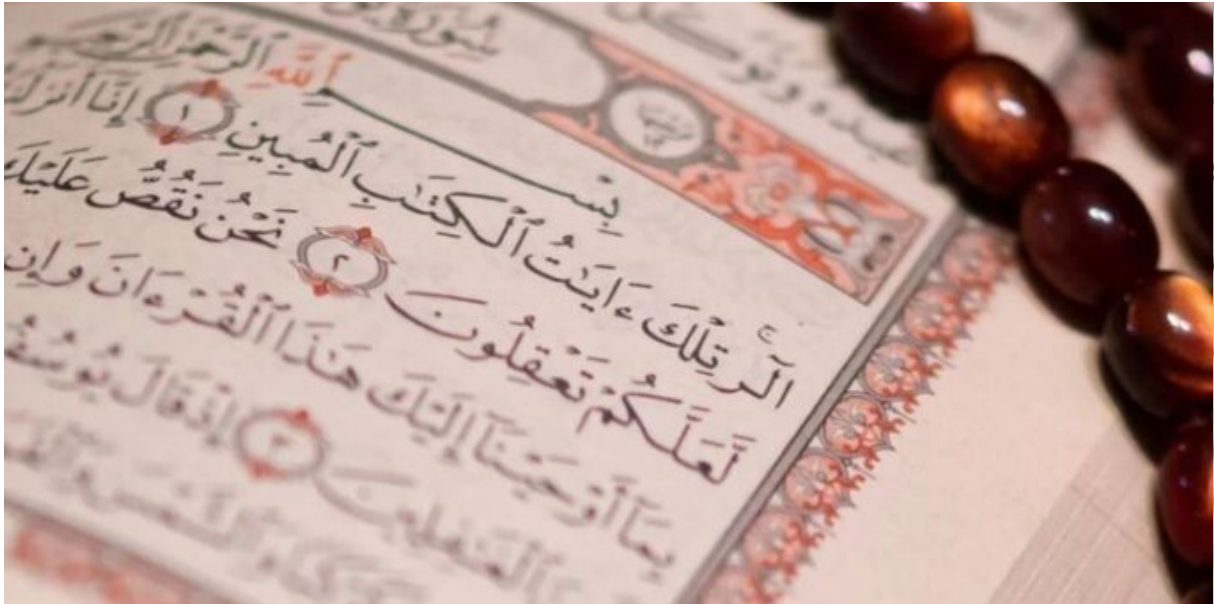 سُورَةُ
بِسْمِ ٱللَّهِ ٱلرَّحْمَـٰنِ ٱلرَّحِيمِ
الٓر ۚ تِلْكَ ءَايَـٰتُ ٱلْكِتَـٰبِ ٱلْمُبِينِ ١ إِنَّآ
لَّعَلَّكُمْ تَعْقِلُونَ ٢ نَحْنُ نَقُصُّ عَلَيْكَ
بِمَآ أَوْحَيْنَآ إِلَيْكَ هَـٰذَا ٱلْقُرْءَانَ وَإِن
ٱلْغَـٰفِلِينَ ٣ إِذْ قَالَ يُوسُفُ
وَٱلشَّمْسَ